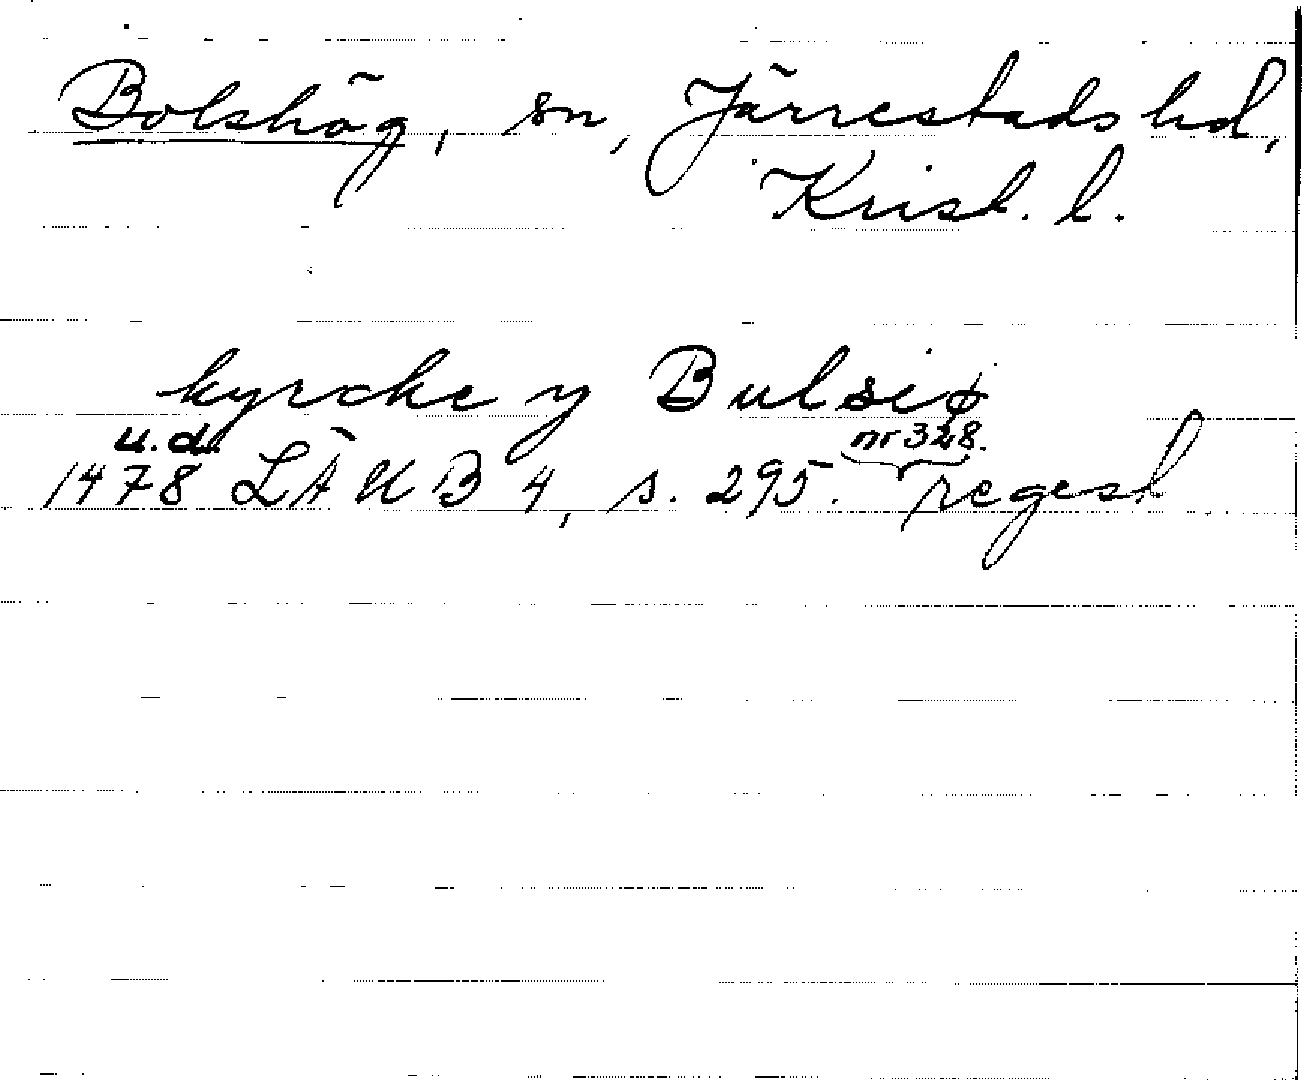 Bolshög, sn, Järrestads hd,
Krist. l.
kyrcke y Bulsiø
u.d. nr 328.
1478 LÄUB 4, s. 295. regest